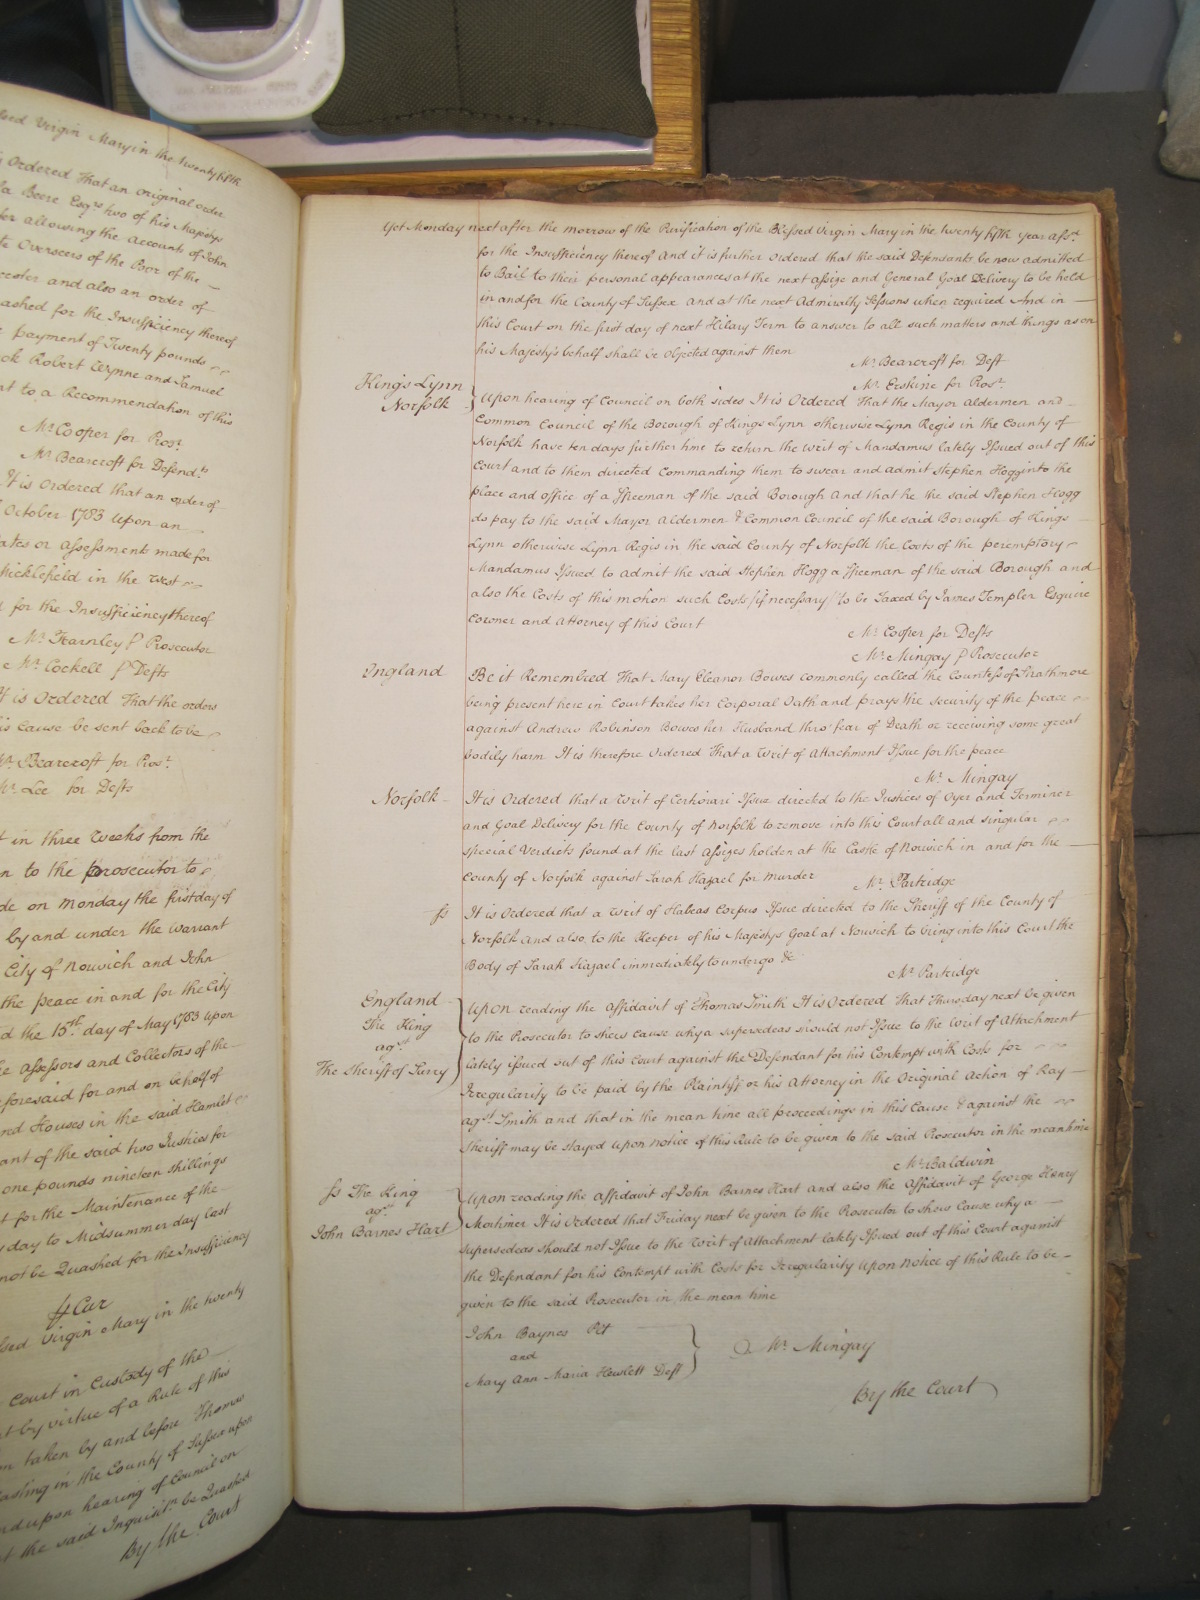 ssed Virgin Mary in the twenty fifth
Ordered That an original order
Beere Esqrs two of his Majestys
for allowing the accounts of John
Overseers of the Poor of the
and also an order of
quashed for the Insufficiency thereof
payment of Twenty pounds
Robert Wynne and Samuel
to a Recommendation of this
Mr Cooper for Prosr
Mr Bearcroft for Defendts
It is Ordered that an order of
October 1783 upon an
rates or assessments made for
Micklefield in the West
for the Insufficiency thereof
Mr Fearnley p Prosecutor
Mr Cockell p Defts
It is Ordered That the orders
is cause be sent back to be
Mr Bearcroft for Prosr
Mr Lee for Defts
in three Weeks from the
to the prosecutor to
on Monday the first day of
by and under the warrant
City of Norwich and John
the peace in and for the City
the 15th day of May 1783 upon
assessors and Collectors of the
aforesaid for and on behalf of
and Houses in the said Hamlet
of the said two Justices for
one pounds nineteen shillings
for the Maintenance of the
day to Midsummer day last
not be Quashed for the Insufficiency
p Cur
ssed Virgin Mary in the twenty
Court in Custody of the
by virtue of a Rule of this
taken by and before Thomas
Hasting in the County of Sussex upon
and upon hearing of Council on
the said Inquisitn be Quashed
By the Court
Yet Monday next after the morrow of the Purification of the Blessed Virgin Mary in the twenty fifth year afsd
for the Insufficiency thereof And it is further Ordered that the said Defendants be now admitted
to Bail to their personal appearances at the next assize and General Goal Delivery to be held
in and for the County of Sussex and at the next Admiralty Sessions when required And in
this Court on the first day of next Hilary Term to answer to all such matters and things as on
his Majesty's behalf shall be objected against them
Mr Bearcroft for Deft
Mr Erskine for Prosr
Kings Lynn
Norfolk
Upon hearing of Council on both sides It is Ordered That the Mayor Aldermen and
Common Council of the Borough of Kings Lynn otherwise Lynn Regis in the County of
Norfolk have ten days further time to return the writ of Mandamus lately Issued out of this
Court and to them directed Commanding them to swear and admit Stephen Hogg into the
place and office of a ffreeman of the said Borough And that he the said Stephen Hogg
do pay to the said Mayor Aldermen & Common Council of the said Borough of Kings
Lynn otherwise Lynn Regis in the said County of Norfolk the Costs of the peremptory
Mandamus Issued to admit the said Stephen Hogg a ffreeman of the said Borough and
also the Costs of this motion such Costs /if necessary/ to be Taxed by James Templer Esquire
Coroner and Attorney of this Court
Mr Cooper for Defts
Mr Mingay p Prosecutor
England
Be it Remembred That Mary Eleanor Bowes commonly called the Countess of Strathmore
being present here in Court takes her Corporal Oath and prays the security of the peace
against Andrew Robinson Bowes her Husband thro' fear of Death or receiving some great
bodily harm It is therefore Ordered That a Writ of Attachment Issue for the peace
Mr Mingay
Norfolk
It is Ordered that a Writ of Certiorari Issue directed to the Justices of Oyer and Terminer
and Goal Delivery for the County of Norfolk to remove into this Court all and singular
special Verdicts found at the last assizes holden at the Castle of Norwich in and for the
County of Norfolk against Sarah Hazael for murder
Mr Partridge
ss
It is Ordered that a Writ of Habeas Corpus Issue directed to the Sheriff of the County of
Norfolk and also to the Keeper of his Majestys Goal at Norwich to bring into this Court the
Body of Sarah Hazael immediately to undergo &c
Mr Partridge
England
The King
agst
The Sheriff of Surry
Upon reading the Affidavit of Thomas Smith It is Ordered That Thursday next be given
to the Prosecutor to shew cause why a supersedeas should not Issue to the Writ of Attachment
lately issued out of this Court against the Defendant for his Contempt with Costs for
Irregularity to be paid by the Plaintiff or his Attorney in the Original Action of Ray
agst Smith and that in the mean time all proceedings in this Cause & against the
Sheriff may be stayed upon notice of this Rule to be given to the said Prosecutor in the mean time
Mr Baldwin
ss The King
agst
John Barnes Hart
Upon reading the affidavit of John Barnes Hart and also the Affidavit of George Henry
Mortimer It is Ordered that Friday next be given to the Prosecutor to shew cause why a
supersedeas should not Issue to the Writ of Attachment lately Issued out of this Court against
the Defendant for his Contempt with Costs for Irregularity upon notice of this Rule to be
given to the said Prosecutor in the mean time
John Baynes Plt
and
Mary Ann Maria Hewlett Deft
Mr Mingay
By the Court